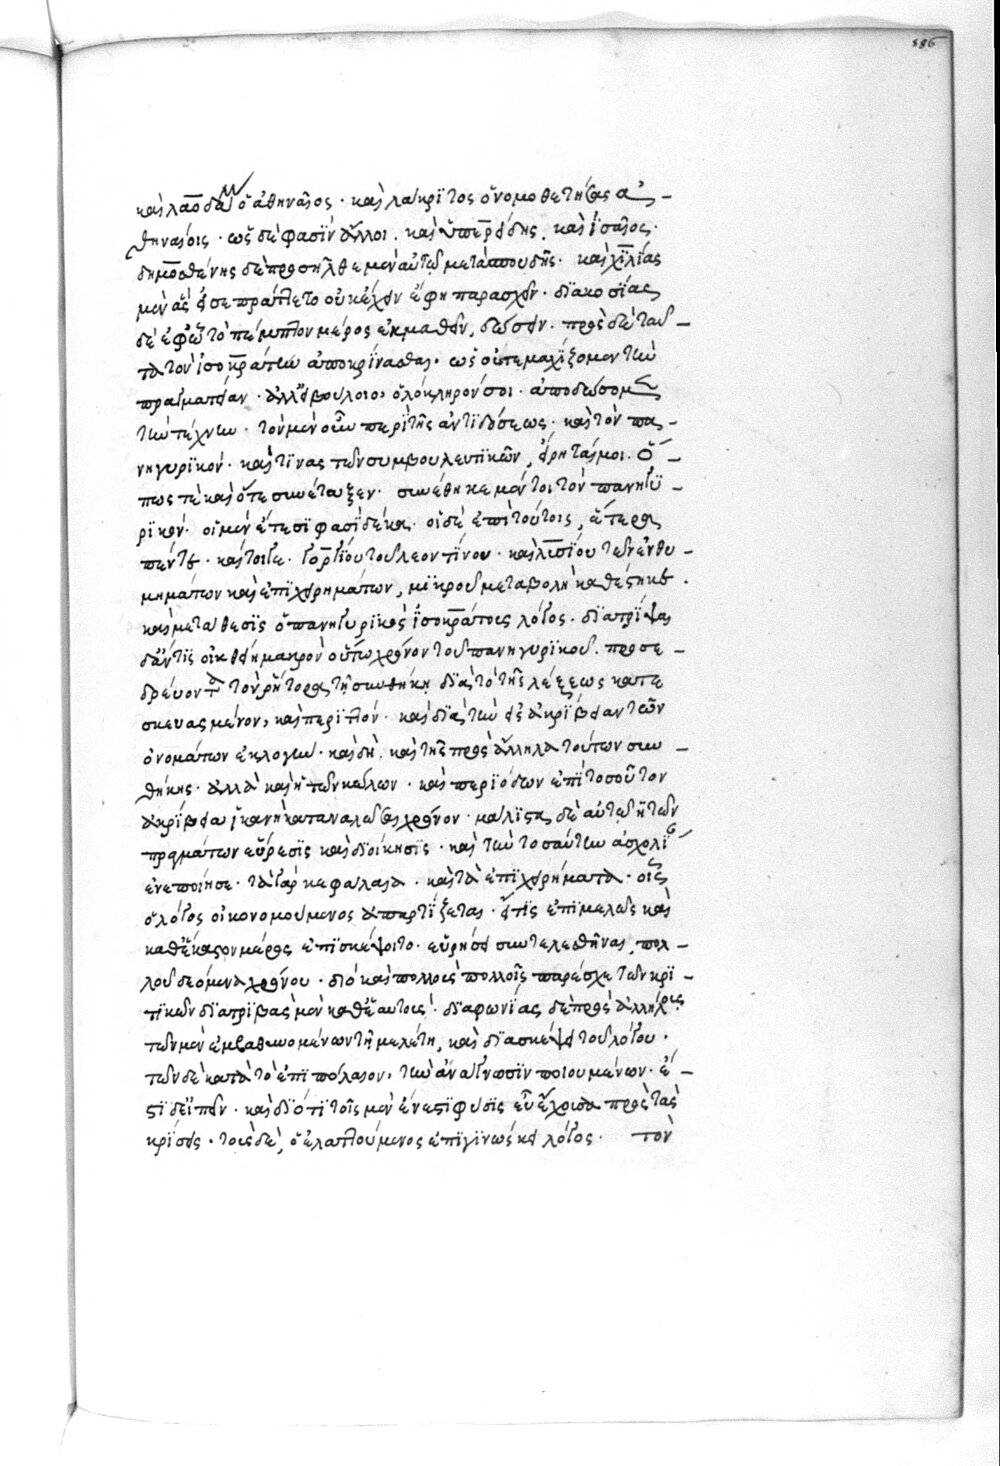 586
καὶ λαοδάμ ὁ ἀθηναῖος · καὶ λάκριτος ὁ νομοθετήσας ἀ-
θηναίοις · ὡς δέ φασὶν ἄλλοι, καὶ ὑπερείδης, καὶ ἰσαῖος ·
δημοσθένης δὲ προσῆλθε μὲν αὐτῷ μετὰ σπουδῆς · καὶ χιλίας
μὲν ἃς εἰσεπράττετο οὐκ ἔχειν ἔφη παρασχεῖν · διακοσίας
δὲ ἐφ' ᾧ τὸ πέμπτον μέρος ἐκμαθεῖν, δώσειν · πρὸς δὲ ταῦ-
τα τὸν ἰσοκράτην ἀποκρίνασθαι · ὡς οὐ τεμαχίζομεν τὴν
πραγματείαν · ἀλλ' εἰ βούλοιο, ὁλόκληρόν σοι · ἀποδώσομαι
τὴν τέχνην · τὸν μὲν οὖν περὶ τῆς ἀντιδόσεως · καὶ τὸν πα-
νηγυρικὸν · καί τινας τῶν συμβουλευτικῶν, εἴρηταί μοι · ὅ-
πως τὲ καὶ ὅτε συνέταξεν · συνέθηκε μέντοι τὸν πανηγυ-
ρικὸν · οἱ μὲν ἔτεσι φασὶ δέκα · οἱ δὲ ἐπὶ τούτοις, ἕτερα
πέντε · καίτοι γε · γοργίου τοῦ λεοντίνου · καὶ λυσίου τῶν ἐνθυ-
μημάτων καὶ ἐπιχειρημάτων, μικροῦ μεταβολὴ καθέστηκε ·
καὶ μετάθεσις ὁ πανηγυρικὸς ἰσοκράτους λόγος · διατρίψαι
δ' ἄν τις οἰηθείη μακρὸν οὕτω χρόνον τοῦ πανηγυρικοῦ · προσε-
δρεύοντα τὸν ῥήτορα τῇ συνθήκῃ διὰ τὸ τῆς λέξεως κατε
σκευασμένον, καὶ περιττὸν · καὶ διὰ τὴν ἐξ ἀκριβείαν τῶν
ὀνομάτων ἐκλογὴν · καὶ δὴ, καὶ τῆς πρὸς ἄλληλα τούτων συν-
θήκης · ἀλλὰ καὶ ἡ τῶν κώλων · καὶ περιόδων ἐπὶ τοσοῦτον
ἀκρίβεια ἱκανὴ καταναλῶσαι χρόνον · μάλιστα δὲ αὐτῷ ἡ τῶν
πραγμάτων εὕρεσις καὶ διοίκησις · καὶ τὴν τοσαύτην ἀσχολίαν
ἐνεποίησε · τὰ γὰρ κεφάλαια · καὶ τὰ ἐπιχειρήματα · οἷς
ὁ λόγος οἰκονομούμενος ἀπαρτίζεται · εἴ τις ἐπιμελῶς καὶ
καθ' ἕκαστον μέρος ἐπισκέψοιτο · εὑρήσει συντελεσθῆναι πολ-
λοῦ δεόμενα χρόνου · διὸ καὶ πολλοὺς πολλοῖς παρέσχε τῶν κρι-
τικῶν διατριβὰς μὲν καθ' ἑαυτοὺς · διαφωνίας δὲ πρὸς ἀλλήλους
τῶν μὲν ἐμβαθυνομένων τῇ μελέτῃ, καὶ διασκέψει τοῦ λόγου ·
τῶν δὲ κατὰ τὸ ἐπιπόλαιον, τὴν ἀνάγνωσιν ποιουμένων · ἔ-
στι δ' εἰπεῖν · καὶ διότι τοῖς μὲν ἔνεστι φύσις εὖ ἔχουσα πρὸς τὰς
κρίσεις · τοὺς δὲ, ὁ ἐλαττούμενος ἐπιγινώσκει λόγος · τὸν